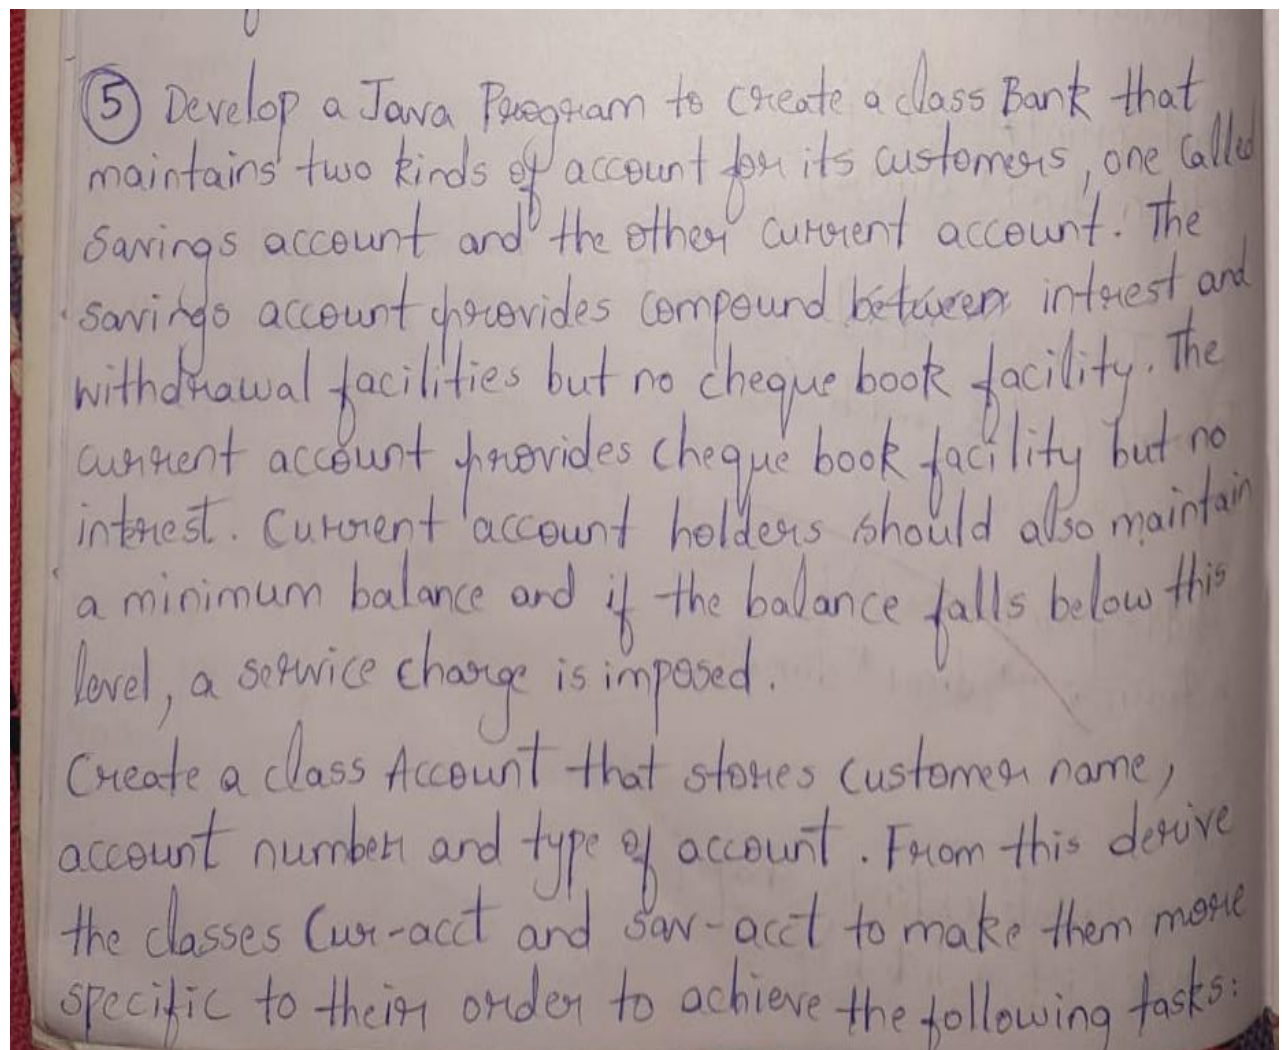 5 Develop a Java Program to create a class Bank that
maintains two kinds of account for its customers, one called
Savings account and the other current account. The
savings account provides compound between interest and
withdrawal facilities but no cheque book facility. The
current account provides cheque book facility but no
interest. Current account holders should also maintain
a minimum balance and if the balance falls below this
level, a service charge is imposed.
Create a class Account that stores customer name,
account number and type of account. From this derive
the classes Cur-acct and Sav-acct to make them more
specific to their order to achieve the following tasks: